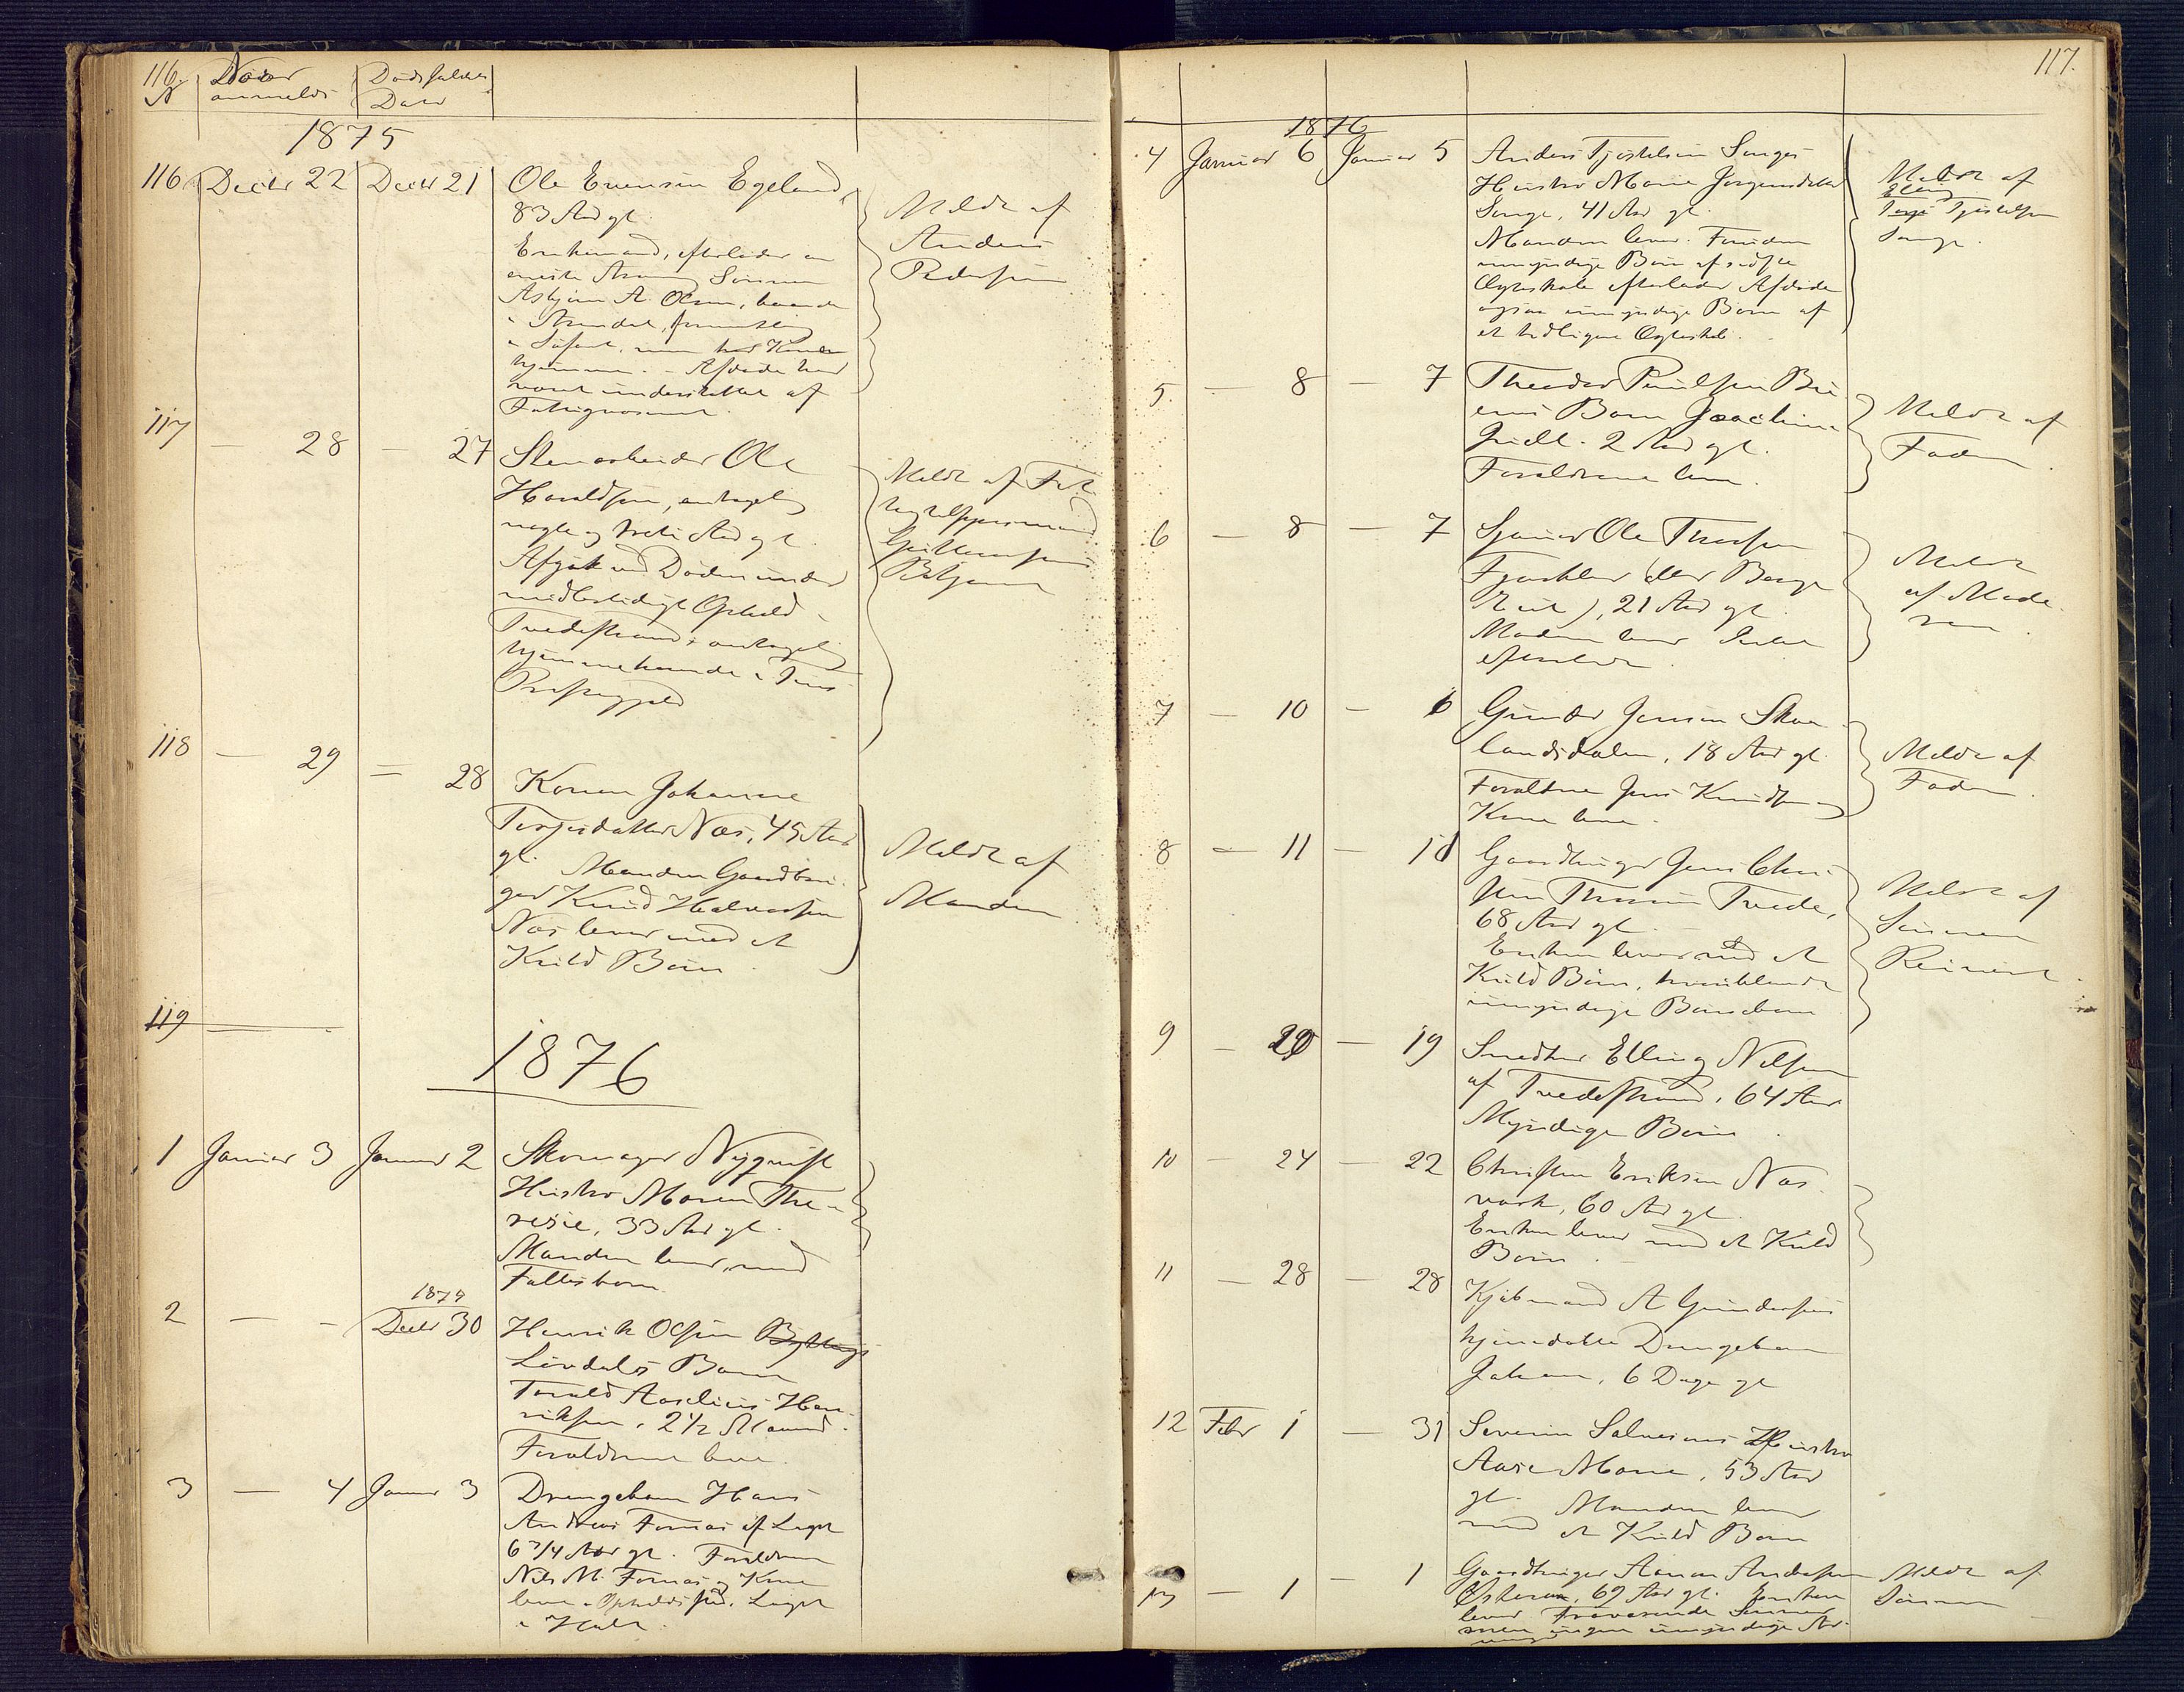 116.
No Naar anmeldt Dødsfaldets Dato
1875
116 Decbr 22 Decbr 21 Ole Evensen Egeland,
83 Aar gl.
Enkemand, efterlader en
eneste Arving Sønnen
Asbjørn A. Olsen, boende
i Arendal, formentlig
i Søfart, men har Kone
hjemme. - Afdøde har
været understøttet af
Fattigvæsenet.
Meldt af
Anders
Pedersen
117 — 28 — 27 Stenarbeider Ole
Haraldsen, antagelig
nogle og treti Aar gl.
Afgik ved Døden under
midlertidigt Ophold i
Tvedestrand; antagelig
hjemmehørende i
Præstegjeld
Meldt af
118 — 29 — 28 Konen Johanne
Terjesdatter Næs, 45 Aar
gl. Manden Gaardbru-
ger Knud Halvorsen
Næs lever med et
Kuld Børn
Meldt af
Manden
119
1876
1 Januar 3 Januar 2 Skomager Nyquist
Hustro Maren The-
resie, 33 Aar gl.
Manden lever, med
Fællesbørn
2 — - 1875 Decbr 30 Henrik Olsen
Løvdals Barn
Torvald Aselius Hen-
riksen, 2 1/2 Maaned.
Forældrene leve.
3 — 4 Januar 3 Drengebarn Hans
Andreas Fornæs af Laget
6 3/4 Aar gl. Forældrene
Nils M. Fornæs og Kone
leve. Opholdssted. Laget
i Holt.
117.
1876
4 Januar 6 Januar 5 Anders Tjøstelsen Songes
Hustro Maren Jørgensdatter
Songe, 41 Aar gl.
Manden lever. Foruden
umyndige Børn af sidste
Ægteskab efterlader Afdøde
ogsaa umyndige Børn af
et tidligere Ægteskab.
Meldt af
Elling
Terje Tjøstelsen
Songe.
5. — 8 — 7 Theodor Poulsen
Barn Joachim
2 Aar gl.
Forældrene leve.
Meldt af
Faderen.
6 — 8 — 7 Sjømand Ole Thorsen
21 Aar gl.
Moderen lever. Intet
efterladt.
Meldt
af Mode-
ren.
7 — 10 — 6 Gunder Jensen Skou-
landsdalen, 18 Aar gl.
Forældrene Jens Knudsen og
Kone leve.
Meldt af
Faderen.
8 — 11 — 10 Gaardbruger Jens Chri-
Tvede,
68 Aar gl.
Enken lever med et
Kuld Børn, hvoriblandt
umyndige Børnebørn
Meldt af
Sønnen
Reinert
9 — 20 — 19 Elling Nilsen
af Tvedestrand, 64 Aar
Myndige Børn.
10 — 24 — 22 Christen Eriksen Næs
værk, 60 Aar gl.
Enken lever med et Kuld
Børn.
11 — 28 — 28 Kjøbmand A Gundersens
hjemedøbte Drengebarn
Johan, 6 Dage gl
12 Febr 1 — 31 Severin Salvesens Hustro
Aase Marie, 53 Aar
gl. Manden lever
med et Kuld Børn
13 — 1 — 1 Gaardbruger Aanon Andersen
Østeraa, 69 Aar gl. Enken
lever Fraværende Sønner
men ingen umyndige Ar-
Meldt af
Sønnen